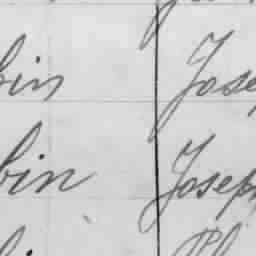 bin Jose
bin Joseph